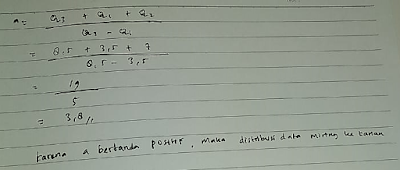 a = Q3 + Q1 + Q2
Q3 - Q1
= 8.5 + 3,5 + 7
8,5 - 3,5
= 19
5
= 3,8 //
karena a bertanda positif, maka distribusi data miring ke kanan